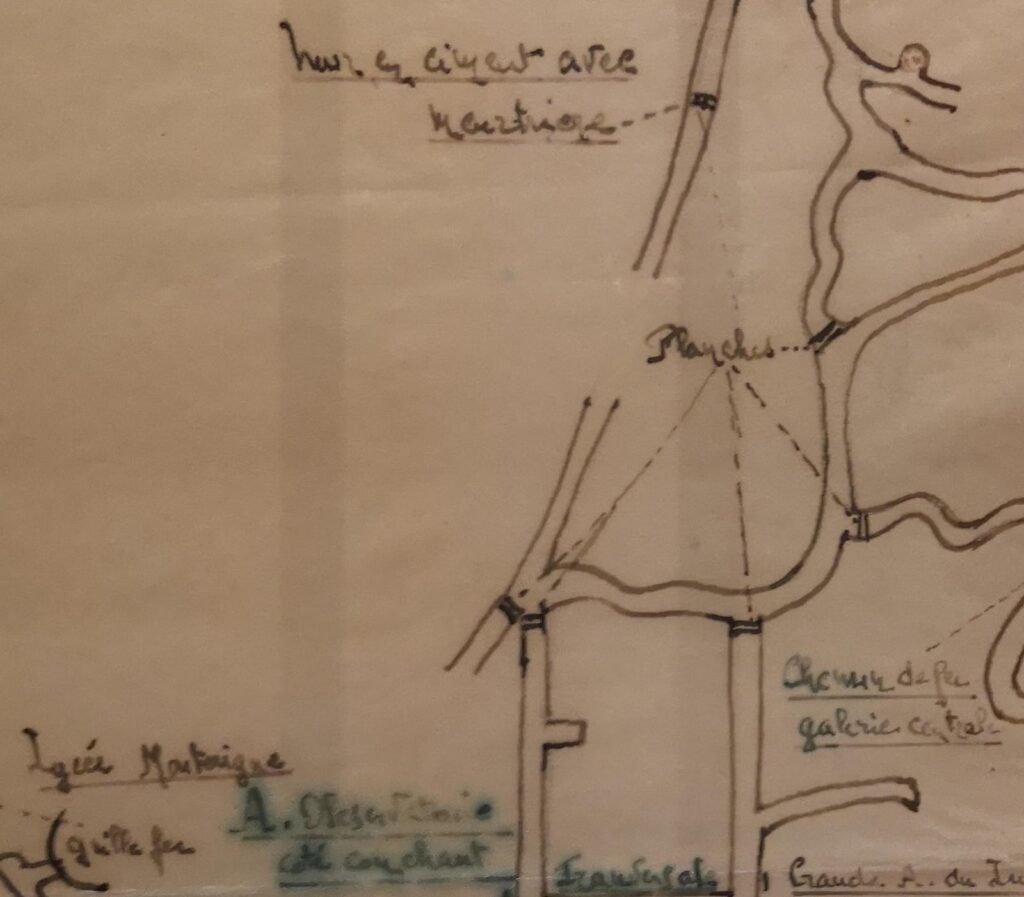 mur en ciment avec
meurtrière
Planches
Chemin de fer
galerie centrale
Lycée Montaigne
grille fer
A. Observatoire
côté couchant
Transversale
Grande A. du Lu